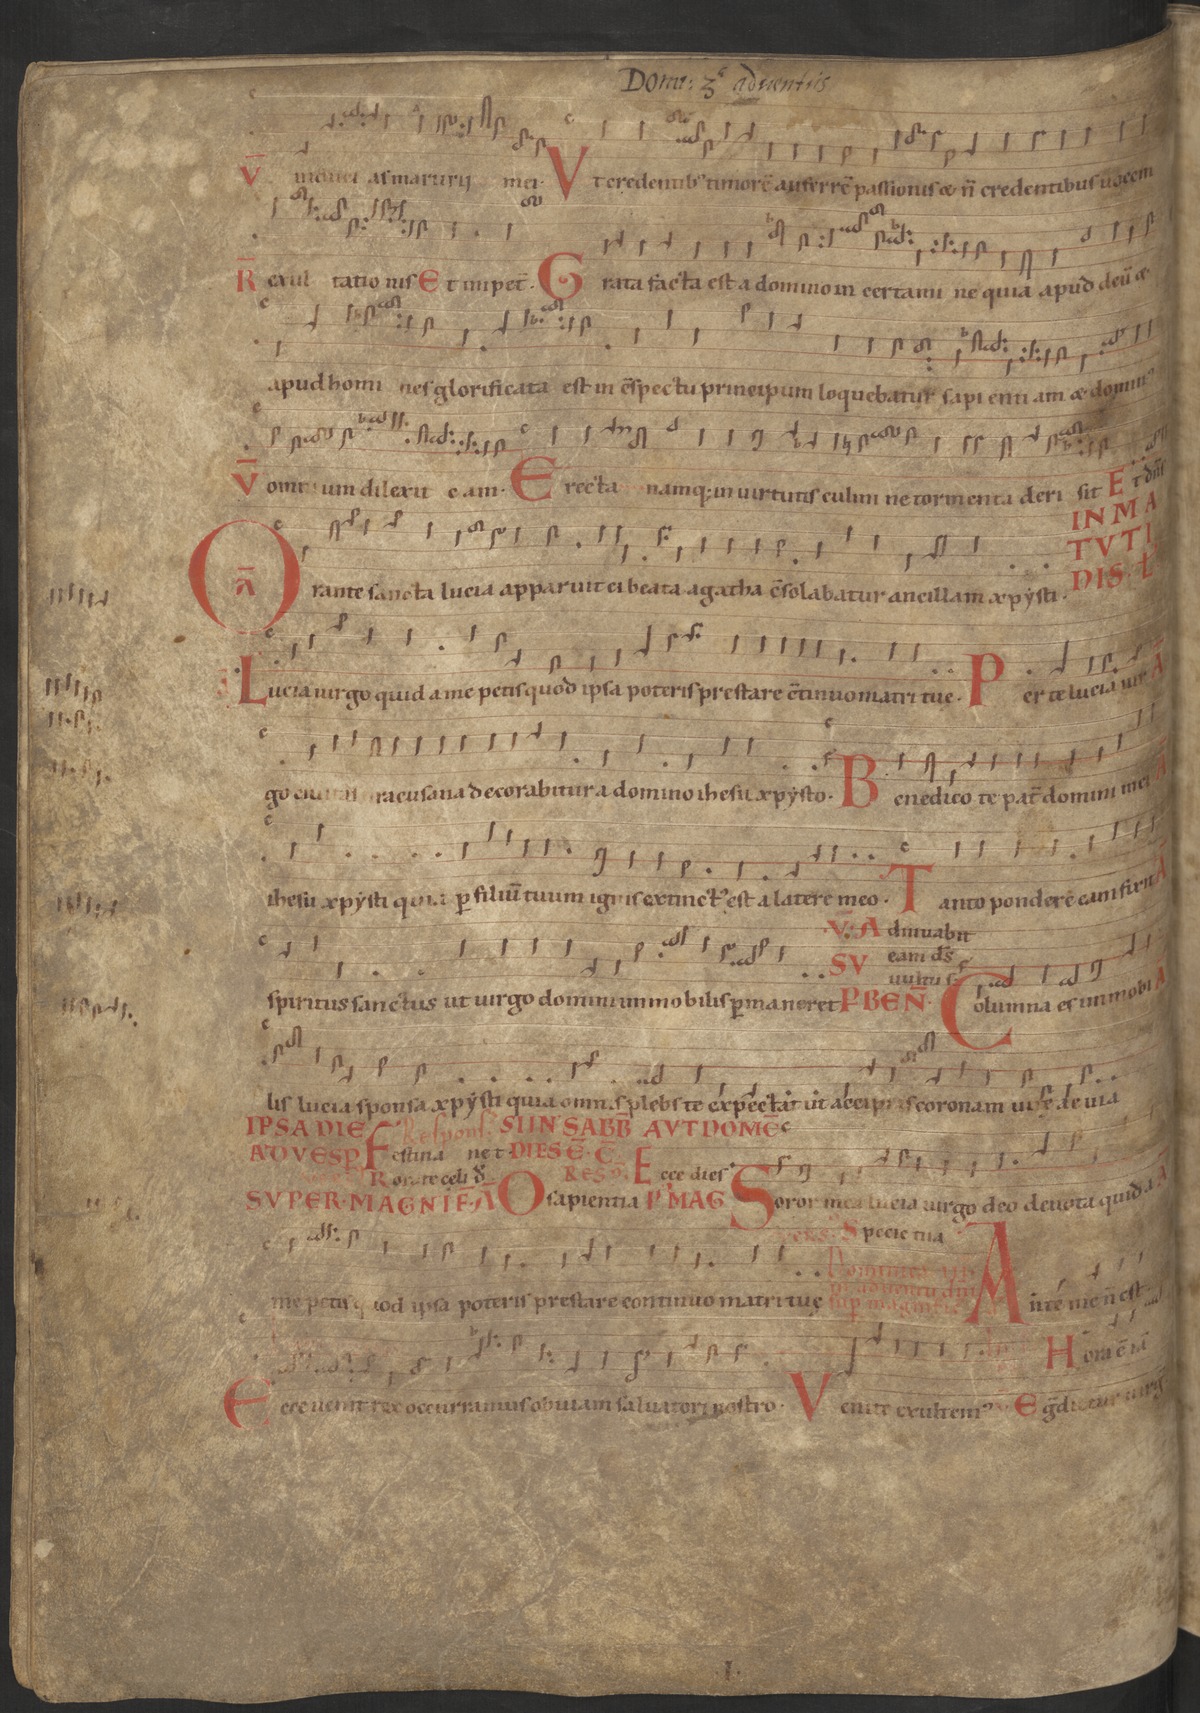 Dom: 3ᵉ aduentus
martyrii mei. Vt credentibꝰ timorē auferrē passionis & n̄ credentibus uocem
R̄ exul tatio nis Et impet̄. Grata facta est a domino in certami ne quia apud deū &
apud homi nes glorificata est in c̄spectu principum loquebatur sapi enti am & dominꝰ
V̄ omnium dilexit eam. Erecta namq; in uirtutis culmi ne tormenta deri sit Et dn̄s
IN MA
TVTI
DIS. L
Ā Orante sancta lucia apparuit ei beata agatha c̄solabatur ancillam xpÿsti.
Lucia uirgo quid a me petis quod ipsa poteris prestare c̄tinuo matri tue. Per te lucia uir Ā
go ciuitas racusana decorabitur a domino ihesu xpÿsto. Benedico te pat̄ domini mei Ā
ihesu xpÿsti quia ꝑ filiū tuum ignis extinctꝰ est a latere meo. Tanto pondere eam fixit Ā
V̄. Adiuuabit
SV eam d̄s
uultu s.
spiritus sanctus ut uirgo domini immobilis ꝑmaneret P BEN̄. Columna es immobi Ā
lis lucia sponsa xpÿsti quia omnis plebs te expectat ut accipias coronam uite ae uia
IPSA DIE Respons. SI IN SABB̄ AVT DOMĒ
AD VESP̄ Festina ne t DIES Ē. C̄.
Rorate celi d̄ Resp. Ecce dies
SVPER MAGNIF̄. Ā O sapientia P̄ MAG Soror mea lucia uirgo deo deuota quid a Ā
uers. Specie tua
me petis quod ipsa poteris prestare continuo matri tuę Dominica iii
in aduentu dni
sup magnific Ante me n̄ est
Hora ē iā
Ecce uenit rex occurramus obuiam saluatori nostro. Venite exultemꝰ Eḡdietur uirg